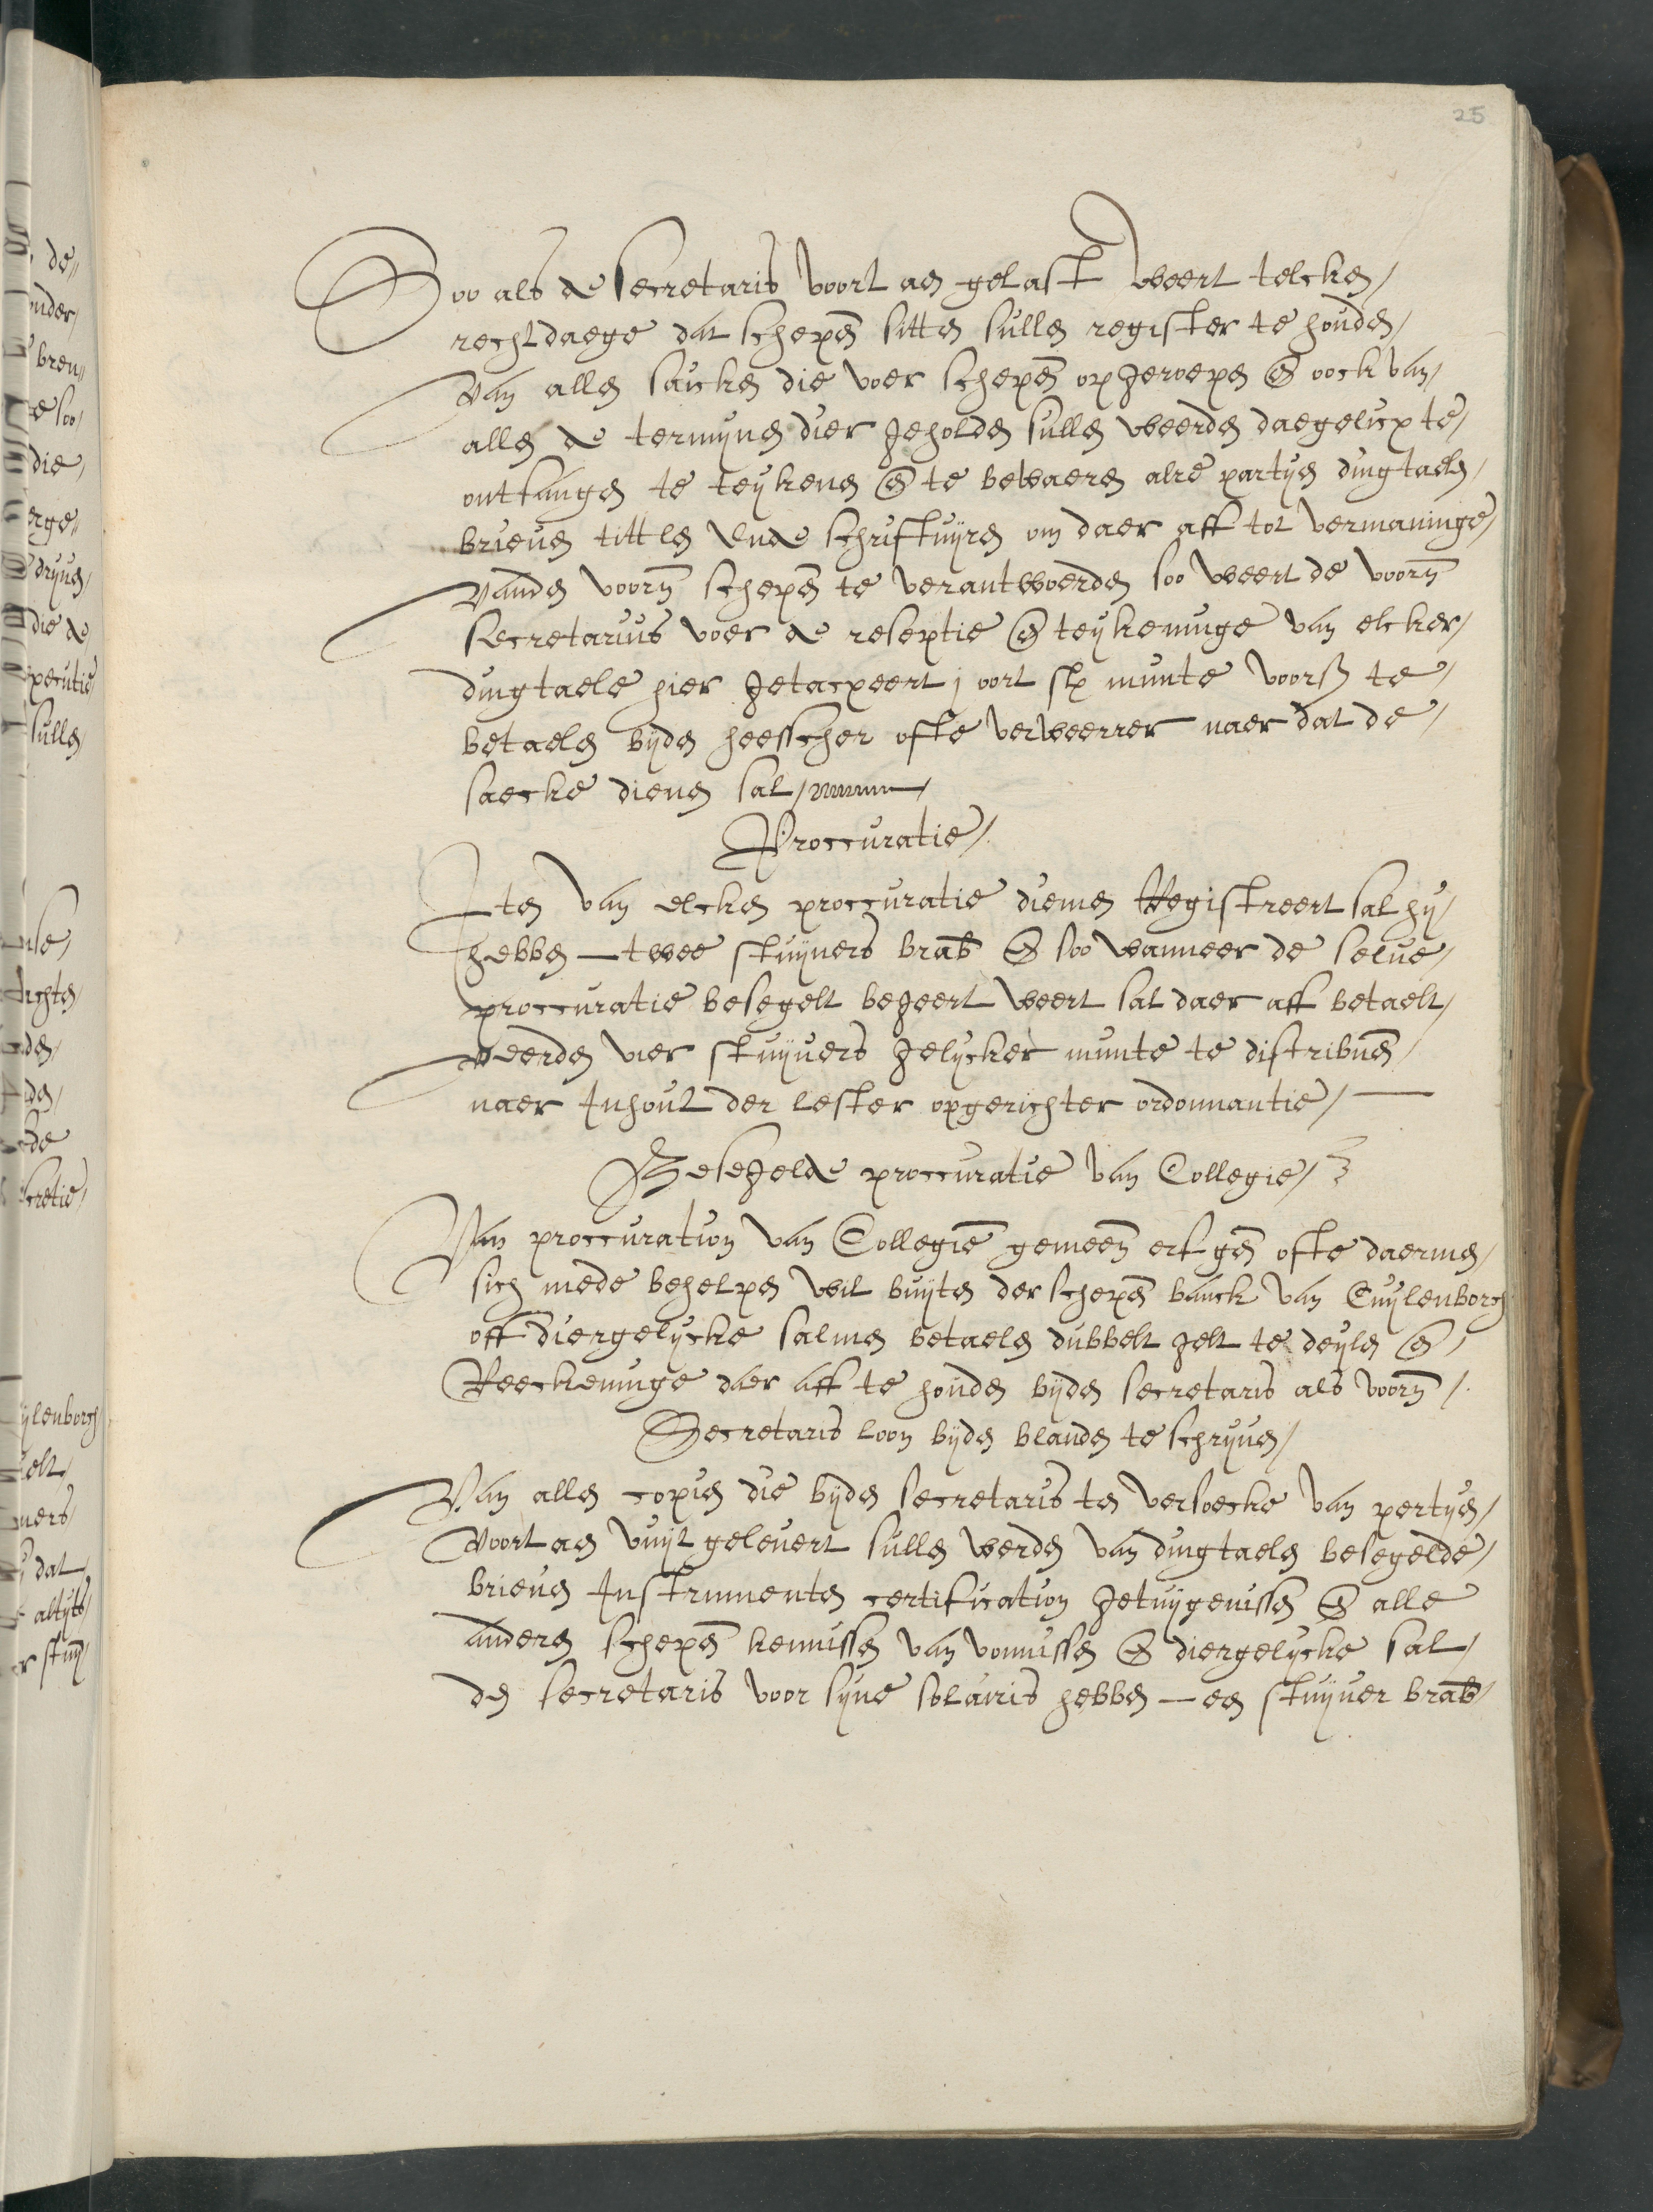 25
Soo als de secretaris voort aen gelast weert telcken
rechtdaege dat schepen sitten sullen register te houden
van allen saicken die voer schepen opgeroepen en oock van
allen de termynen dier geholden sullen weerden daegelicx te
ontfangen te teykenen en te bewaeren alre partyen dingtaelen
brieven tittlen ende schriftuyren om daer aff tot vermaninge
vanden voorn schepen te verantwoerden soo weert de voorn
secretarius voer de reseptie en teykeninge van elcker
dingtaele hier getacxeert j oort st munte voors te
betaelen byden heesscher ofte verweerrer naer dat de
saecke dienen sal
Proccuratie
Item van elcken proccuratie diemen Registreert sal hy
hebben - twee stuyvers brab en soo wanneer de selve
proccuratie besegelt begeert weert sal daer aff betaelt
weerden vier stuyvers gelycker munte te distribuen
naer Inhout der lester opgerichter ordonnantie
Besegelde proccuratie van Collegie
Van proccuration van Collegie gemeen erfgen ofte daermen
sich mede behelpen wil buyten der schepen banck van Cuylenborch
off diergelycke salmen betaelen dubbelt gelt te deylen en
Reeckeninge daer aff te houden byden secretaris als voorn
Secretaris loon byden blanden te schryven
Van allen copien die byden secretaris ten versoecke van pertyen
voort aen vuyt gelevert sullen werden van dingtaelen besegelde
brieven Instrumenten certification getuygenissen en alle
anderen schepen kennissen van vonnissen en diergelycke sal
den secretaris voor syne solairis hebben - een stuyver brab